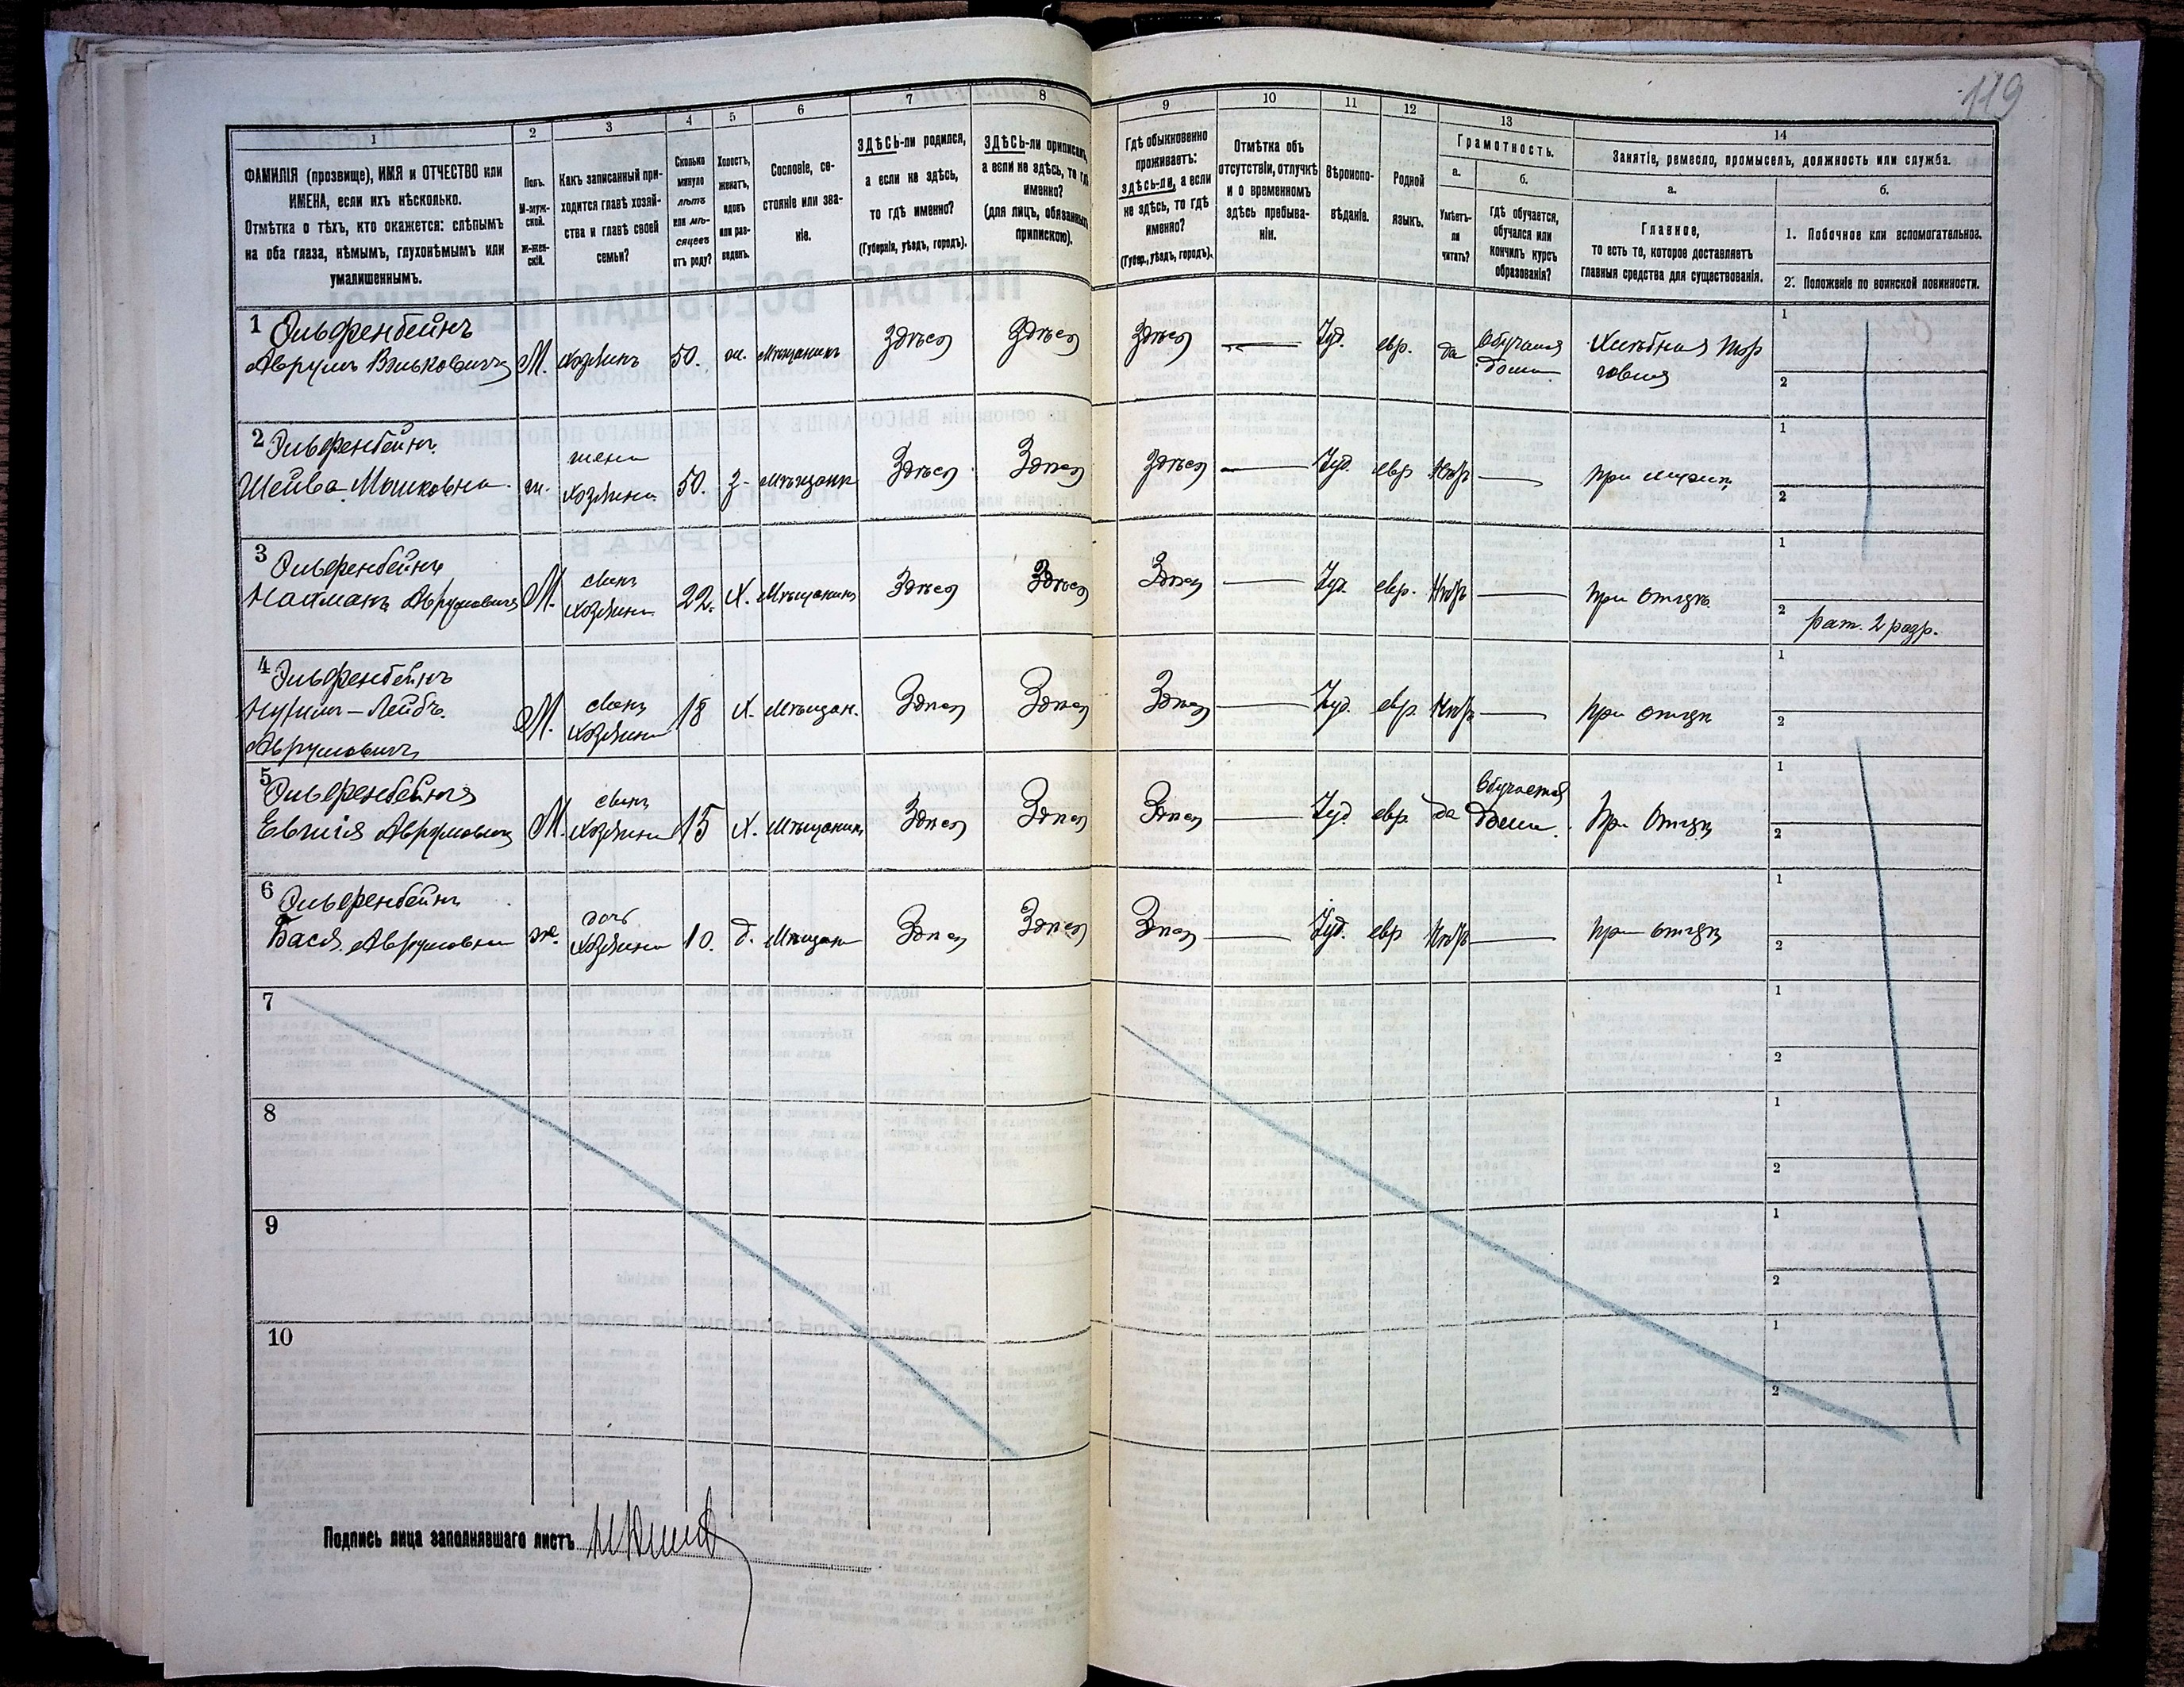 119
1
ФАМИЛІЯ (прозвище), ИМЯ и ОТЧЕСТВО или
ИМЕНА, если ихъ нѣсколько.
Отмѣтка о тѣхъ, кто окажется: слѣпымъ
на оба глаза, нѣмымъ, глухонѣмымъ или
умалишеннымъ.
2
Полъ.
М-муж-
ской.
Ж-жен-
скій.
3
Какъ записанный при-
ходится главѣ хозяй-
ства и главѣ своей
семьи?
4
Сколько
минуло
лѣтъ
или мѣ-
сяцевъ
отъ роду?
5
Холостъ,
женатъ,
вдовъ
или раз-
веденъ.
6
Сословіе, со-
стояніе или зва-
ніе.
7
ЗДѢСЬ-ли родился,
а если не здѣсь,
то гдѣ именно?
(Губернія, уѣздъ, городъ).
8
ЗДѢСЬ-ли приписанъ,
а если не здѣсь, то гдѣ
именно?
(для лицъ, обязанныхъ
припискою).
9
Гдѣ обыкновенно
проживаетъ:
здѣсь-ли, а если
не здѣсь, то гдѣ
именно?
(Губер., уѣздъ, городъ).
10
Отмѣтка объ
отсутствіи, отлучкѣ
и о временномъ
здѣсь пребыва-
ніи.
11
Вѣроиспо-
вѣданіе.
12
Родной
языкъ.
13
Грамотность.
а.
Умѣетъ-
ли
читать?
б.
гдѣ обучается,
обучался или
кончилъ курсъ
образованія?
14
Занятіе, ремесло, промыселъ, должность или служба.
а.
Главное,
то есть то, которое доставляетъ
главныя средства для существованія.
б.
1. Побочное или вспомогательное.
2. Положеніе по воинской повинности.
1 Эльфенбейнъ
Аврумъ Вольковичъ М. Хозяинъ 50. ж. Мѣщанинъ Здѣсь Здѣсь Здѣсь — Іуд. евр. да Обучался дома Хлѣбная тор
говля
1
2
2 Эльфенбейнъ
Шейва Мошковна ж. жена
хозяина 50. з. Мѣщанка Здѣсь Здѣсь Здѣсь — Іуд. евр Нѣтъ — при мужѣ
1
2
3 Эльфенбейнъ
Нахманъ Аврумовичъ М. сынъ
хозяина 22. Х. Мѣщанинъ Здѣсь Здѣсь Здѣсь — Іуд. евр. Нѣтъ — при отцѣ
1
2 рат. 2 разр.
4 Эльфенбейнъ
Нухимъ-Лейбъ
Аврумовичъ М. сынъ
хозяина 18 Х. Мѣщан. Здѣсь Здѣсь Здѣсь — Іуд. евр. Нѣтъ — при отцѣ
1
2
5 Эльфенбейнъ
Аврумовичъ М. сынъ
хозяина 15 Х. Мѣщанинъ Здѣсь Здѣсь Здѣсь — Іуд евр да Обучается
дома. При Отцѣ
1
2
6 Эльфенбейнъ
Бася Аврумовна ж. дочь
хозяина 10. д. Мѣщан Здѣсь Здѣсь Здѣсь — Іуд. евр Нѣтъ — при отцѣ
1
2
7
1
2
8
1
2
9
1
2
10
1
2
Подпись лица заполнявшаго листъ